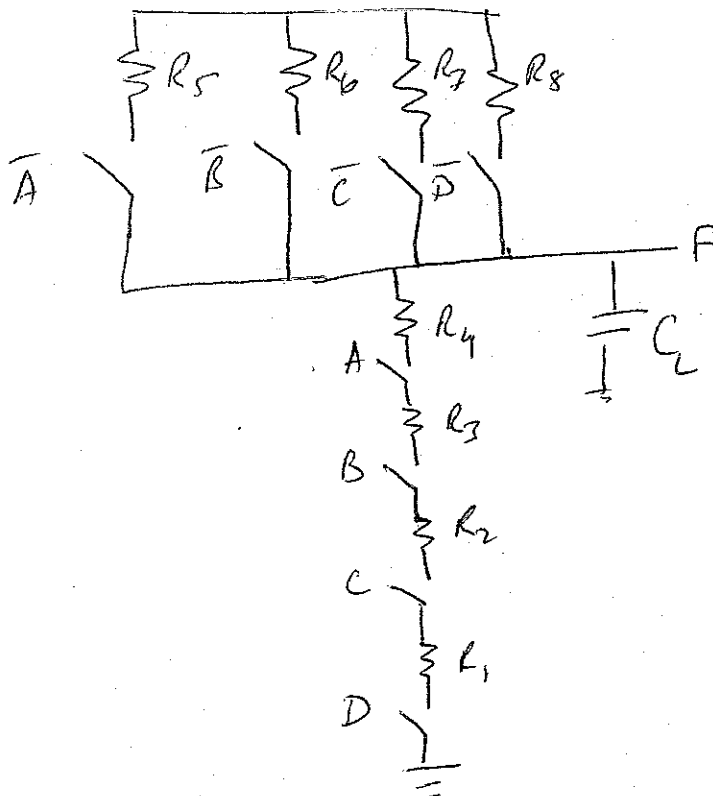 R5 R6 R7 R8
A̅ B̅ C̅ D̅
F
R4
CL
A
R3
B
R2
C
R1
D